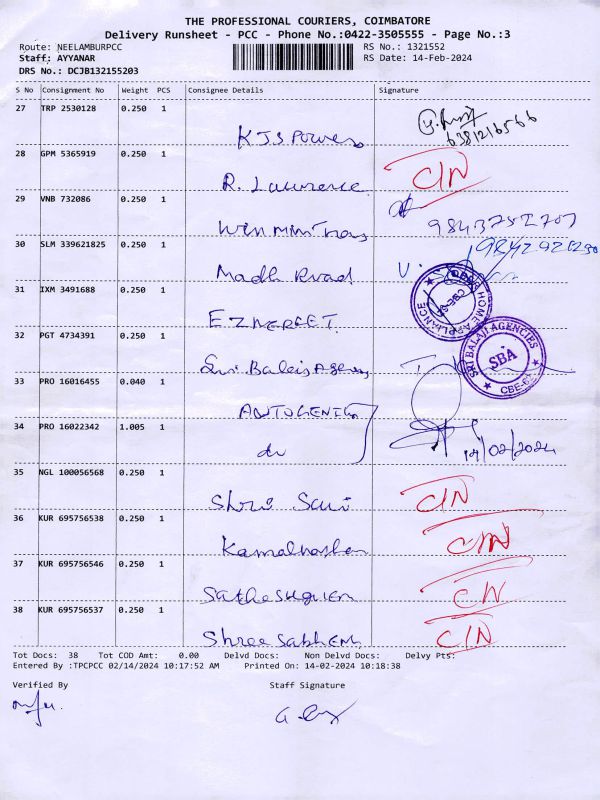 THE PROFESSIONAL COURIERS, COIMBATORE
Delivery Runsheet - PCC - Phone No.:0422-3505555 - Page No.:3
Route: NEELAMBURPCC RS No.: 1321552
Staff: AYYANAR RS Date: 14-Feb-2024
DRS No.: DCJB132155203
S No Consignment No Weight PCS Consignee Details Signature
27 TRP 2530128 0.250 1
KJS Power 6381216566
28 GPM 5365919 0.250 1
R. Lawrence CIN
29 VNB 732086 0.250 1
9843752707
30 SLM 339621825 0.250 1
Madh Road
31 IXM 3491688 0.250 1
HOME APPLIANCE
32 PGT 4734391 0.250 1
Sri Balaji Agency SRI BALAJI AGENCIES SBA
33 PRO 16016455 0.040 1
34 PRO 16022342 1.005 1
do 14/02/2024
35 NGL 100056568 0.250 1
Shri Sai CIN
36 KUR 695756538 0.250 1
CIN
37 KUR 695756546 0.250 1
CIN
38 KUR 695756537 0.250 1
Shree CIN
Tot Docs: 38 Tot COD Amt: 0.00 Delvd Docs: Non Delvd Docs: Delvy Pts:
Entered By :TPCPCC 02/14/2024 10:17:52 AM Printed On: 14-02-2024 10:18:38
Verified By Staff Signature